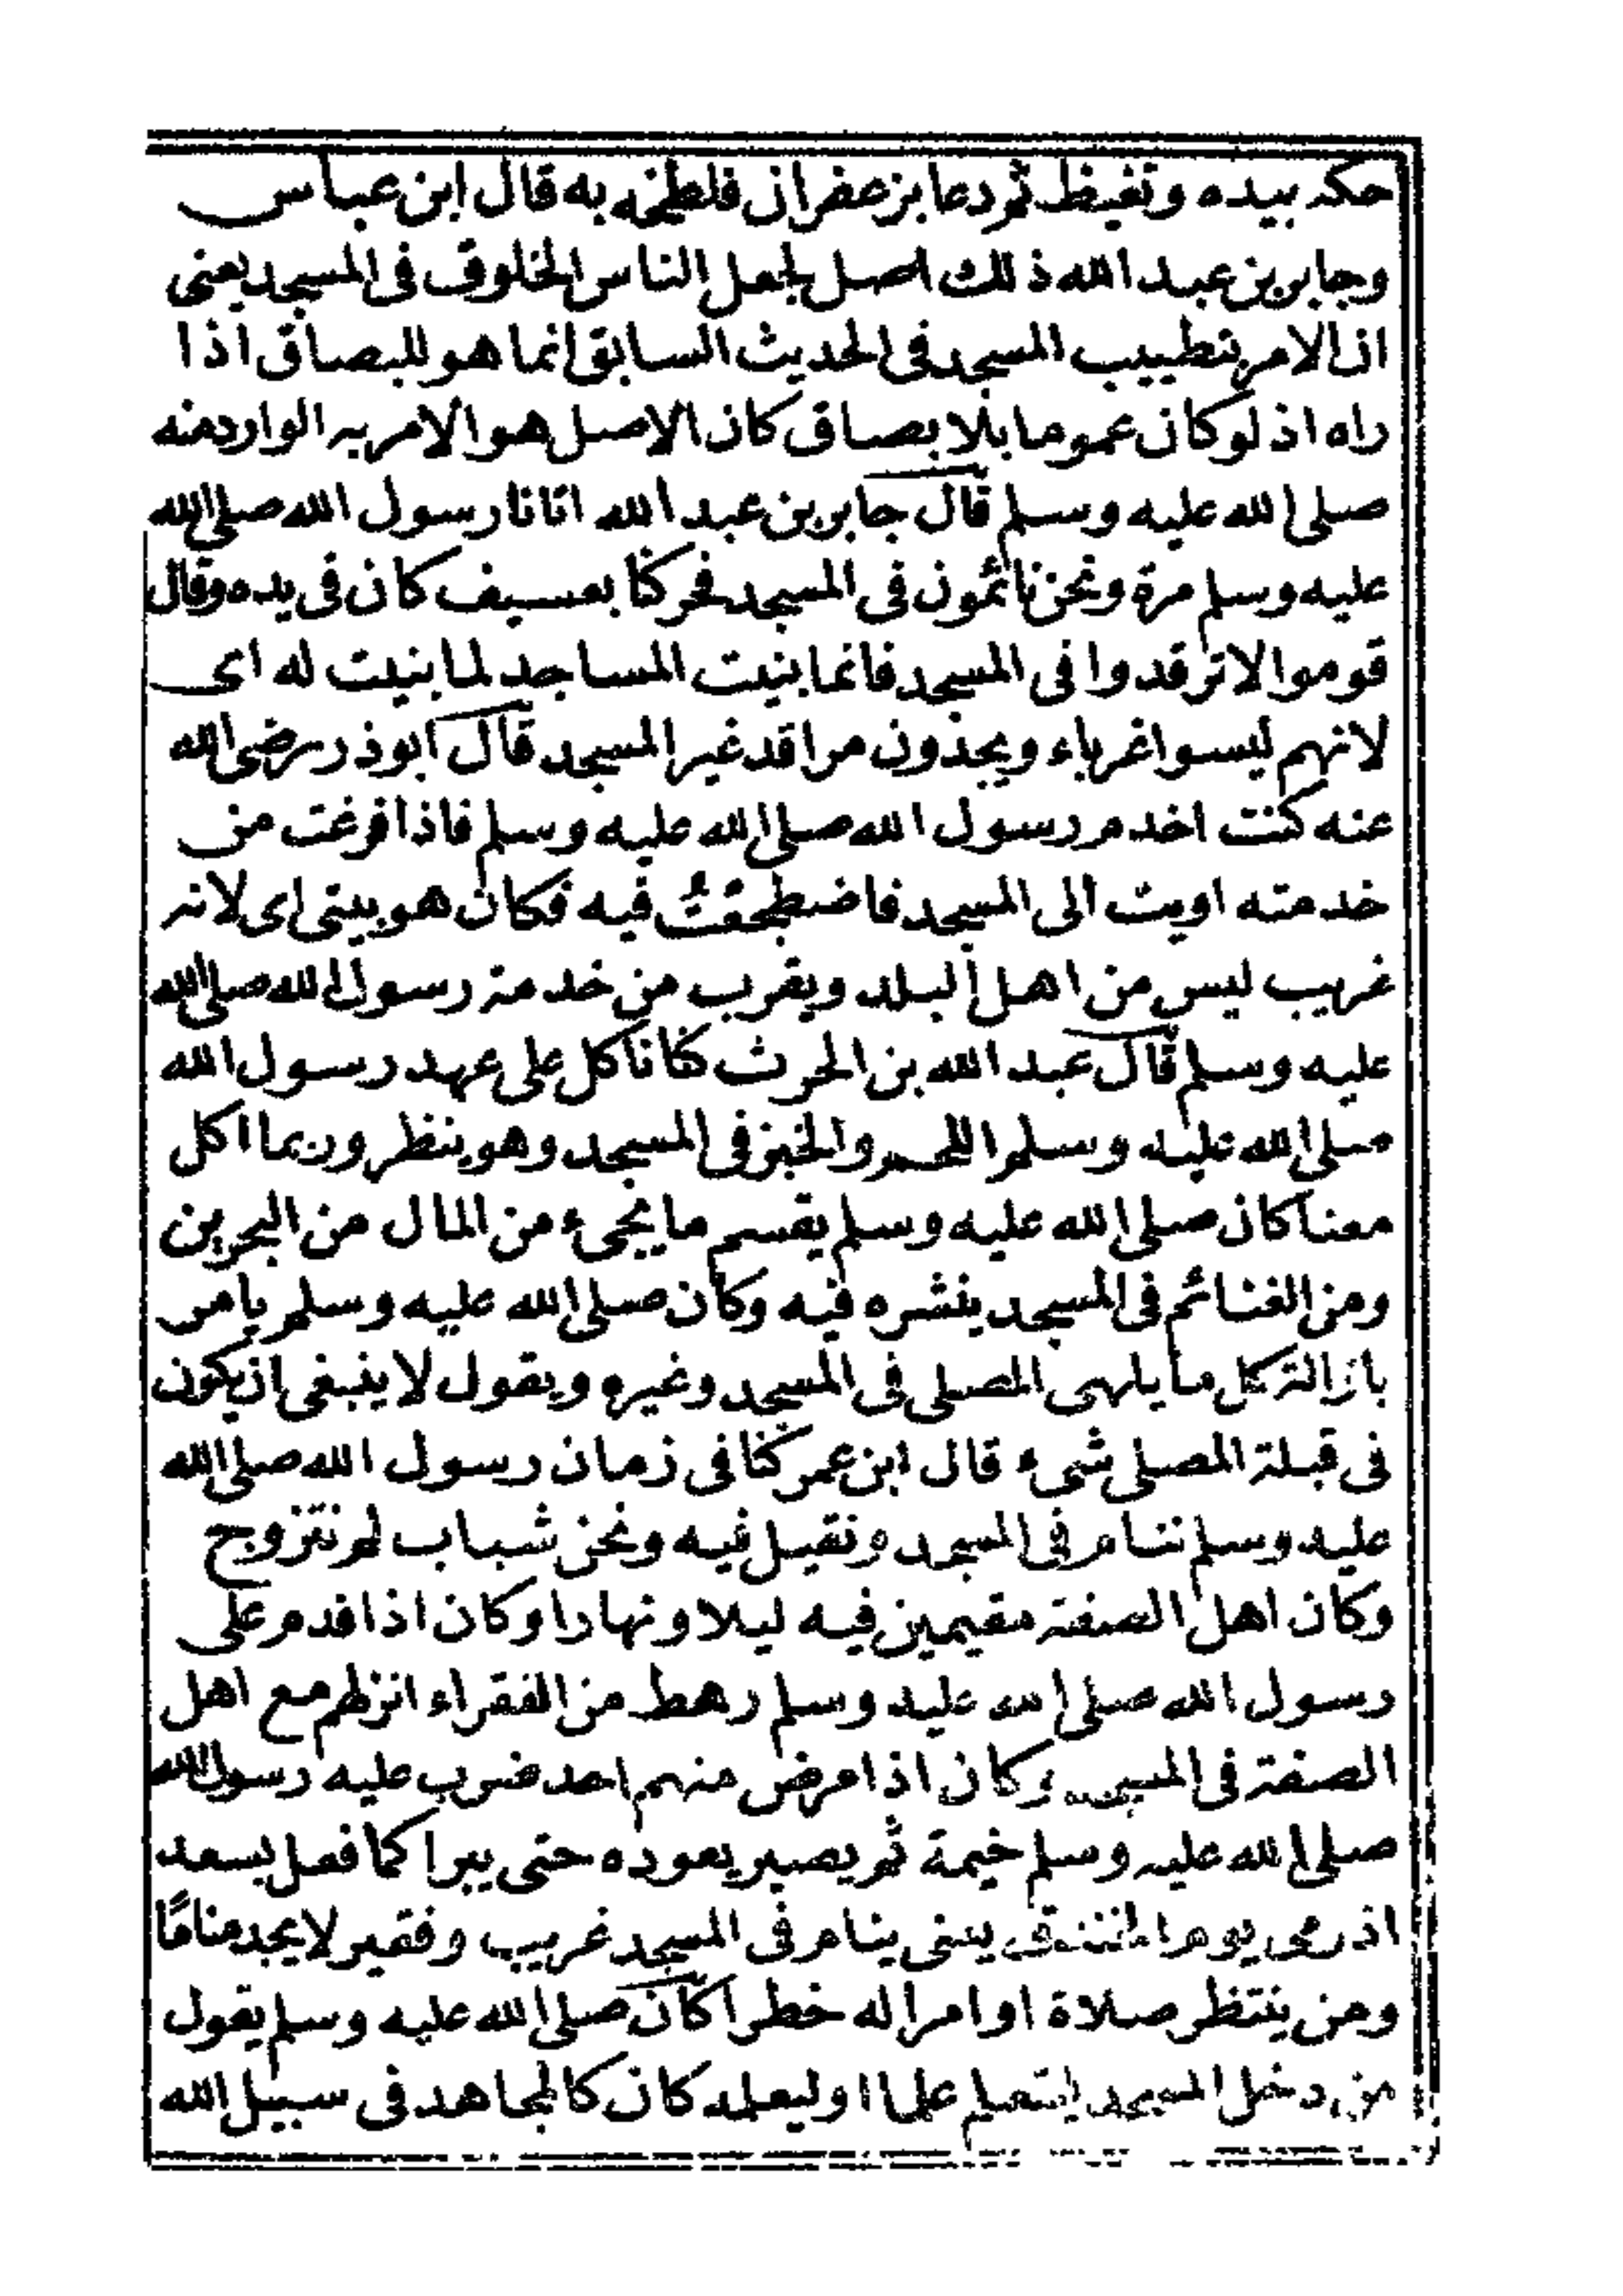 حكه بيده وتغيظ ثم دعا بزعفران فلطخه به قال ابن عباس
وجابر بن عبد الله ذلك اصل لجعل الناس الخلوق فى المسجد يعنى
ان الامر بتطييب المسجد فى الحديث السابق انما هو للبصاق اذا
راه اذ لو كان عموما بلا بصاق كان الاصل هو الامر به الوارد منه
صلى الله عليه وسلم قال جابر بن عبد الله اتانا رسول الله صلى الله
عليه وسلم مرة ونحن نائمون فى المسجد فحركنا بعسيف كان فى يده وقال
قوموا لا ترقدوا فى المسجد فانما بنيت المساجد لما بنيت له اى
لانهم ليسوا غرباء ويجدون مراقد غير المسجد قال ابوذر رضى الله
عنه كنت اخدم رسول الله صلى الله عليه وسلم فاذا فرغت من
خدمته اويت الى المسجد فاضطجعت فيه فكان هو بيتى اى لانه
غريب ليس من اهل البلد ويقرب من خدمة رسول الله صلى الله
عليه وسلم قال عبد الله بن الحرث كنا ناكل على عهد رسول الله
صلى الله عليه وسلم اللحم والخبز فى المسجد وهو ينظر وربما اكل
معنا كان صلى الله عليه وسلم يقسم ما يجىء من المال من البحرين
ومن الغنائم فى المسجد ينشره فيه وكان صلى الله عليه وسلم يامر
بازالة كل ما يلهى المصلى فى المسجد وغيره ويقول لا ينبغى ان يكون
فى قبلة المصلى شىء قال ابن عمر كنا فى زمان رسول الله صلى الله
عليه وسلم ننام فى المسجد ونقيل فيه ونحن شباب لم نتزوج
وكان اهل الصفة مقيمين فيه ليلا ونهارا وكان اذا قدم على
رسول الله صلى الله عليه وسلم رهط من الفقراء انزلهم مع اهل
الصفة فى المسجد وكان اذا مرض منهم احد ضرب عليه رسول الله
صلى الله عليه وسلم خيمة ثم يصير يعوده حتى يبرا كما فعل بسعد
اذ رمى يوم الخندق يعنى ينام فى المسجد غريب وفقير لا يجد مناما
ومن ينتظر صلاة او امرا له خطر كان صلى الله عليه وسلم يقول
من دخل المسجد ليتعلم علما او ليعلمه كان كالمجاهد فى سبيل الله